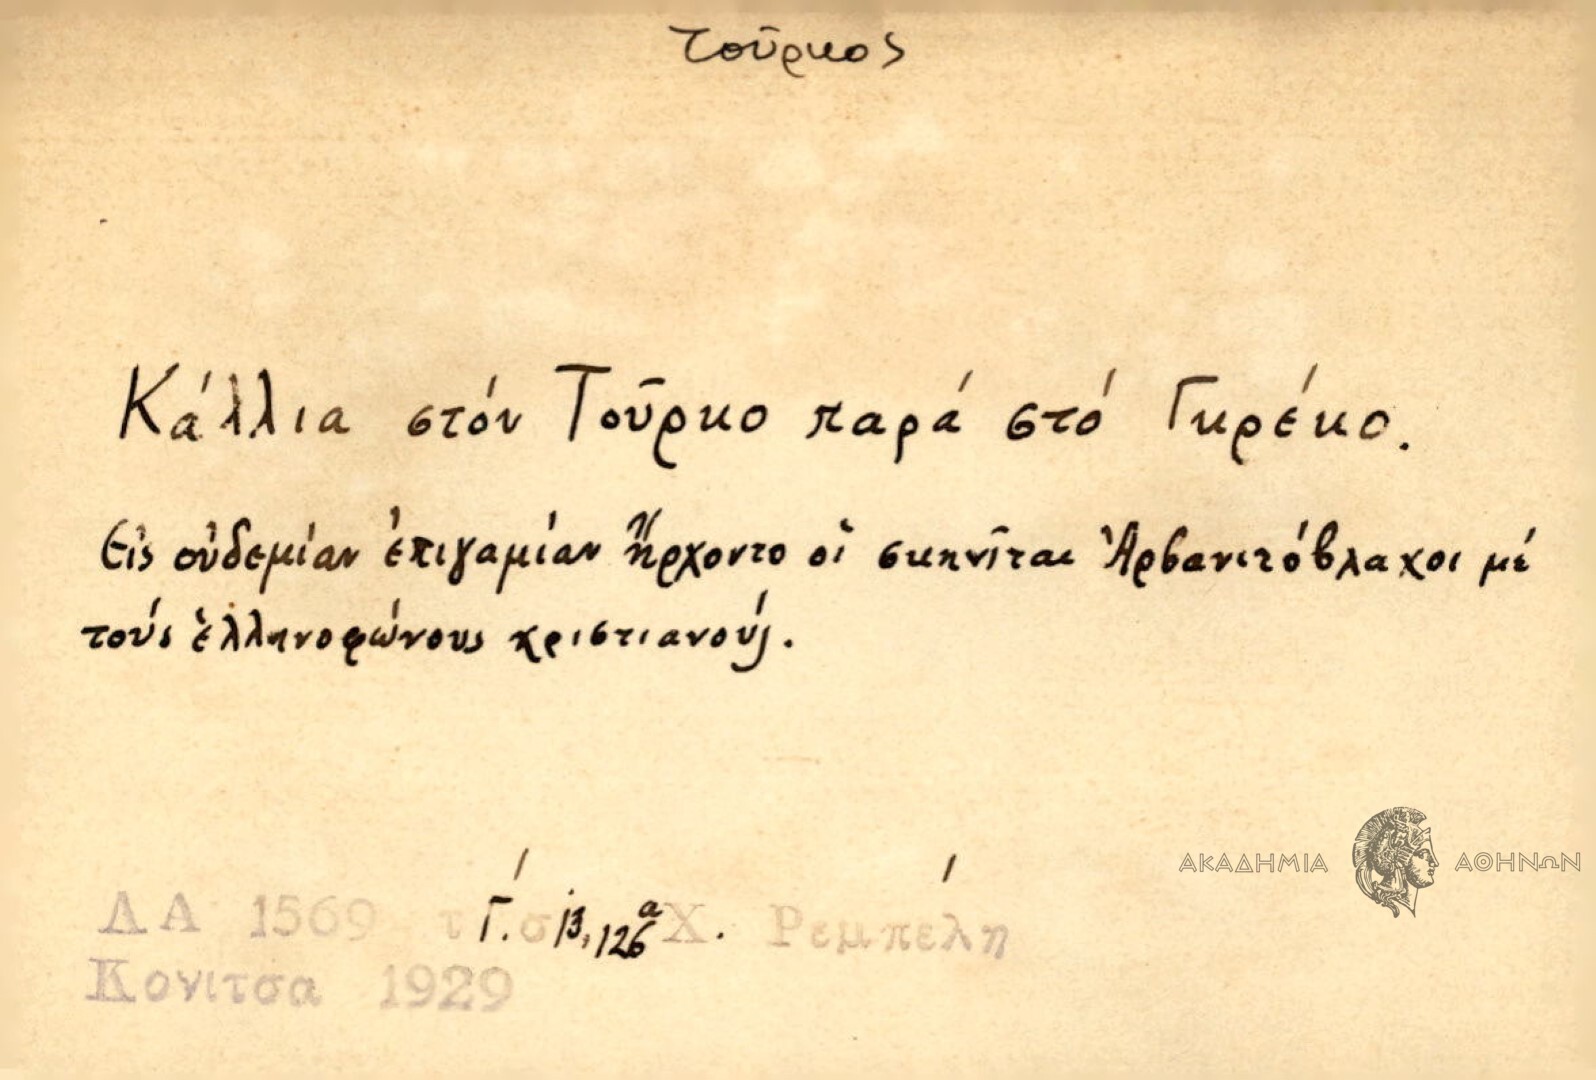 Τοῦρκος
Κάλλια στόν Τοῦρκο παρά στό Γκρέκο.
Εἰς οὐδεμίαν ἐπιγαμίαν ἤρχοντο οἱ σκηνῖται Ἀρβανιτόβλαχοι μέ
τούς ἑλληνοφώνους χριστιανούς.
ΑΚΑΔΗΜΙΑ ΑΘΗΝΩΝ
ΛΑ 1569 τ Γ. σ β, 126α Χ. Ρεμπέλη
Κονιτσα 1929